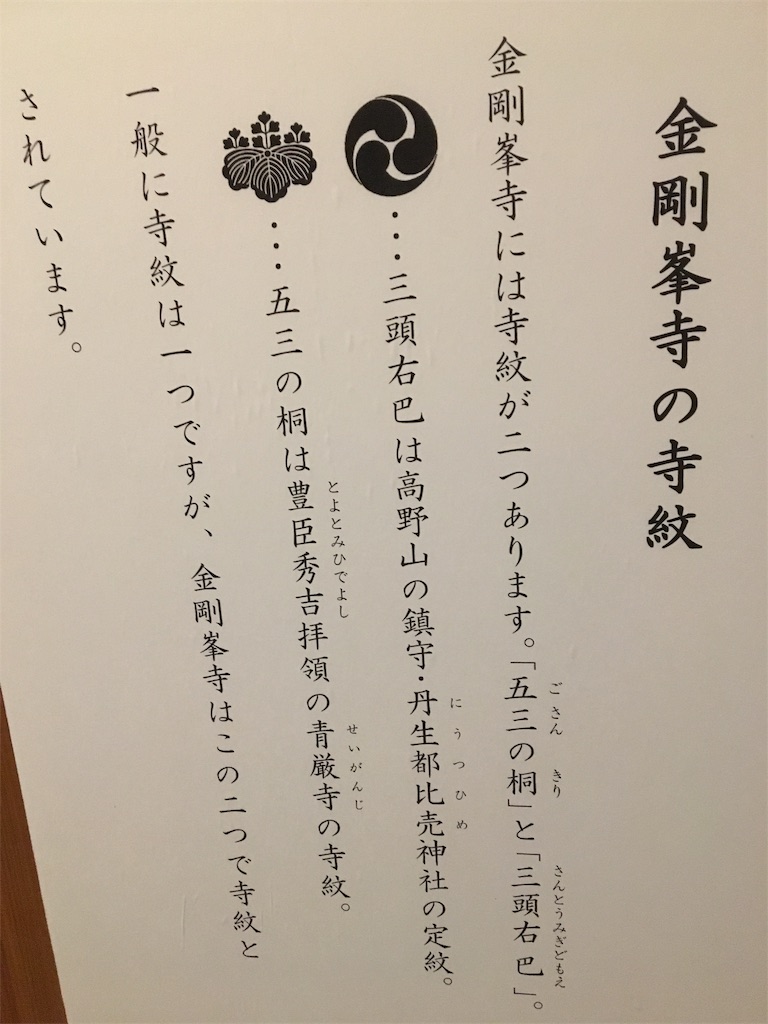 金剛峯寺の寺紋
金剛峯寺には寺紋が二つあります。「五三の桐」と「三頭右巴」。
ごさん きり さんとうみぎどもえ
…三頭右巴は高野山の鎮守・丹生都比売神社の定紋。
にうつひめ
…五三の桐は豊臣秀吉拝領の青厳寺の寺紋。
とよとみひでよし せいがんじ
一般に寺紋は一つですが、金剛峯寺はこの二つで寺紋と
されています。